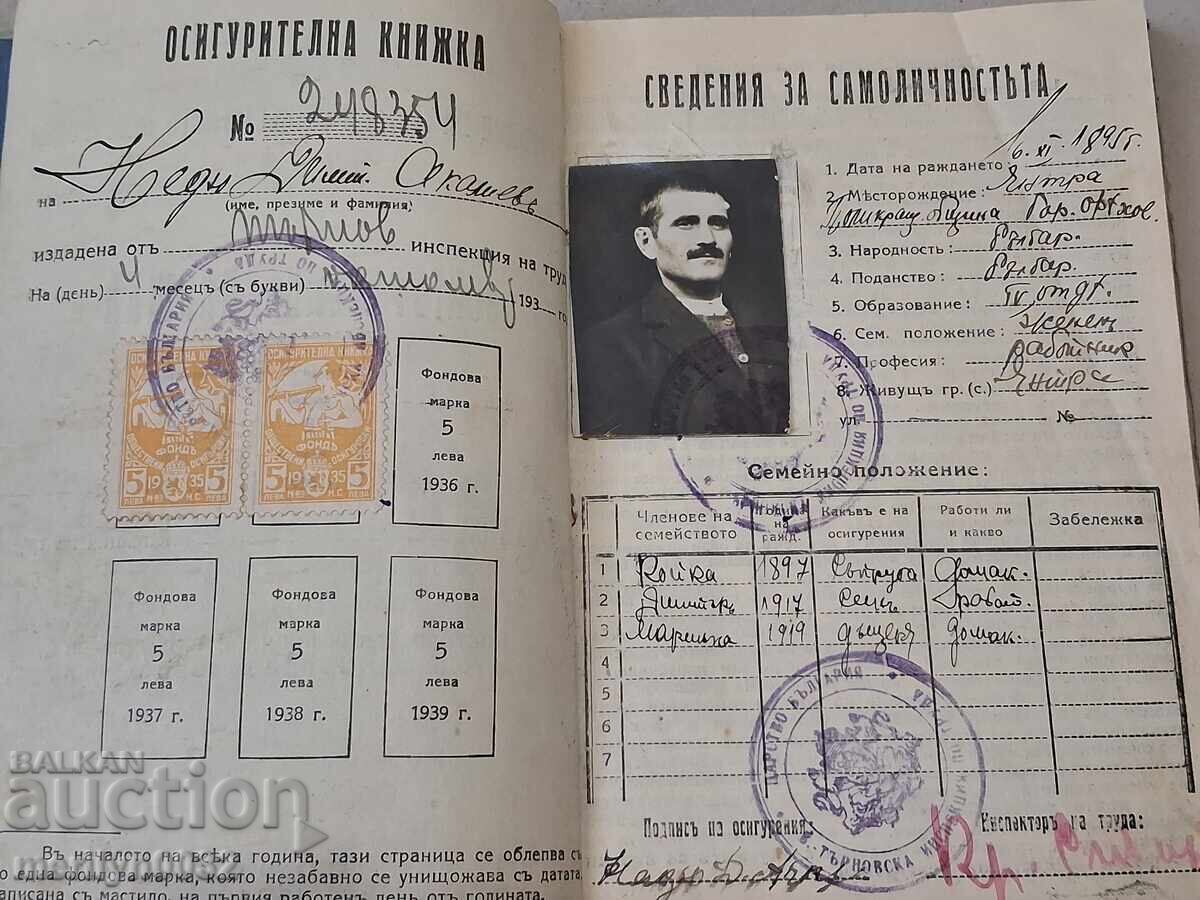 ОСИГУРИТЕЛНА КНИЖКА
№ 248354
на Недю Димит.
(име, презиме и фамилия)
издадена отъ Търнов инспекция на труда
На (день) 4 месецъ (съ букви) 193 го
ОСИГУРИТЕЛНА КНИЖКА
ФОНДЪ
ОБЩЕСТВЕНИ ОСИГУРОВКИ
5 1935 5
ЛЕВА М-ВО Н.С. ЛЕВА
ОСИГУРИТЕЛНА КНИЖКА
ФОНДЪ
ОБЩЕСТВЕНИ ОСИГУРОВКИ
5 1935 5
ЛЕВА М-ВО Н.С. ЛЕВА
Фондова
марка
5
лева
1936 г.
Фондова
марка
5
лева
1937 г.
Фондова
марка
5
лева
1938 г.
Фондова
марка
5
лева
1939 г.
Въ началото на всѣка година, тази страница се облепва съ
по една фондова марка, която незабавно се унищожава съ датата,
написана съ мастило, на първия работенъ день отъ годината.
СВЕДЕНИЯ ЗА САМОЛИЧНОСТЬТА
1. Дата на раждането: 6. XI. 1895 г.
2. Мѣсторождение: Янтра
община Гор. орѣхов.
3. Народность: Българ.
4. Поданство: Българ.
5. Образование: IV отдѣ.
6. Сем. положение: Жененъ
7. Професия: Работник
8. Живущъ гр. (с.) Янтра
ул. №
Семейно положение:
Членове на семейството Година на ражд. Какъвъ е на осигурения Работи ли и какво Забележка
1 Койка 1897 Съпруга Домак.
2 Димитъръ 1917 Синъ Работ.
3 Марийка 1919 дъщеря домак.
4
5
6
7
ЦАРСТВО БЪЛГАРИЯ
В.-ТЪРНОВСКА ИНСПЕКЦИЯ ПО ТРУДА
Подписъ на осигурения: Инспекторъ на труда:
BALKAN
auction